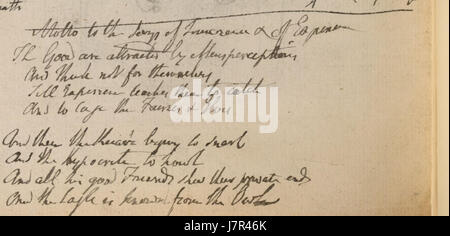 Motto to the Songs of Innocence & of Experience
The Good are attracted by Mens perceptions
And Think not for themselves
Till Experience teaches them to catch
And to cage the Fairies & Elves
And then the Knave begins to snarl
And the Hypocrite to howl
And all his good Friends shew their private ends
And the Eagle is known from the Owl
alamy
Image ID: J7R46K
www.alamy.com